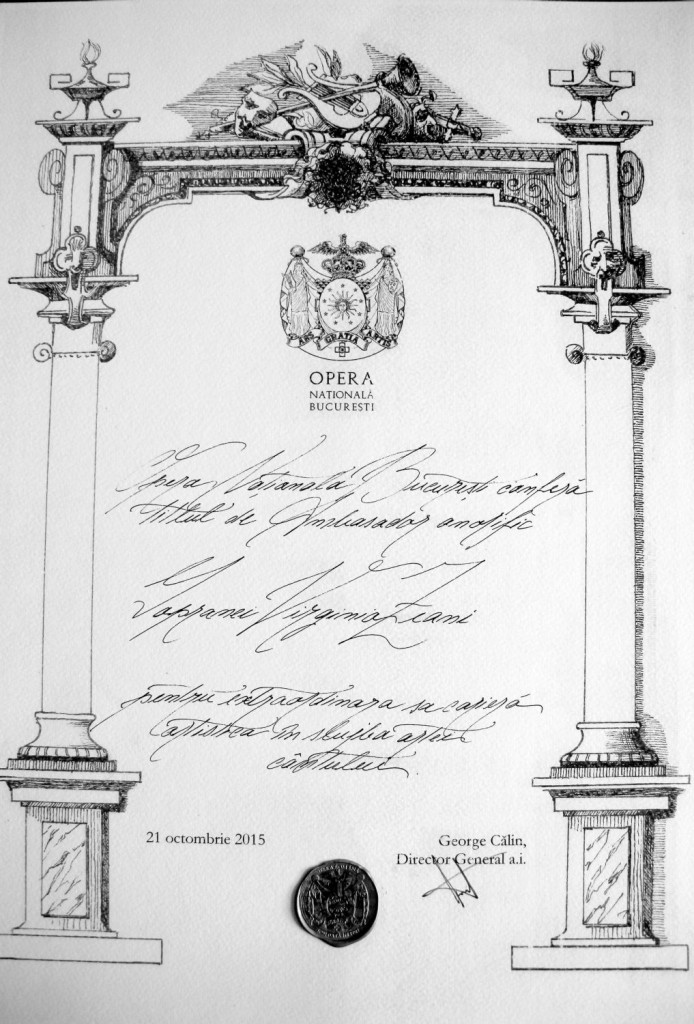 ARS GRATIA ARTIS
OPERA
NATIONALĂ
BUCURESTI
Opera Natională Bucuresti conferă
titlul de Ambasador onorific
Sopranei Virginia Zeani
pentru extraordinara sa carieră
artistică în slujba artei
cântului
21 octombrie 2015
George Călin,
Director General a.i.